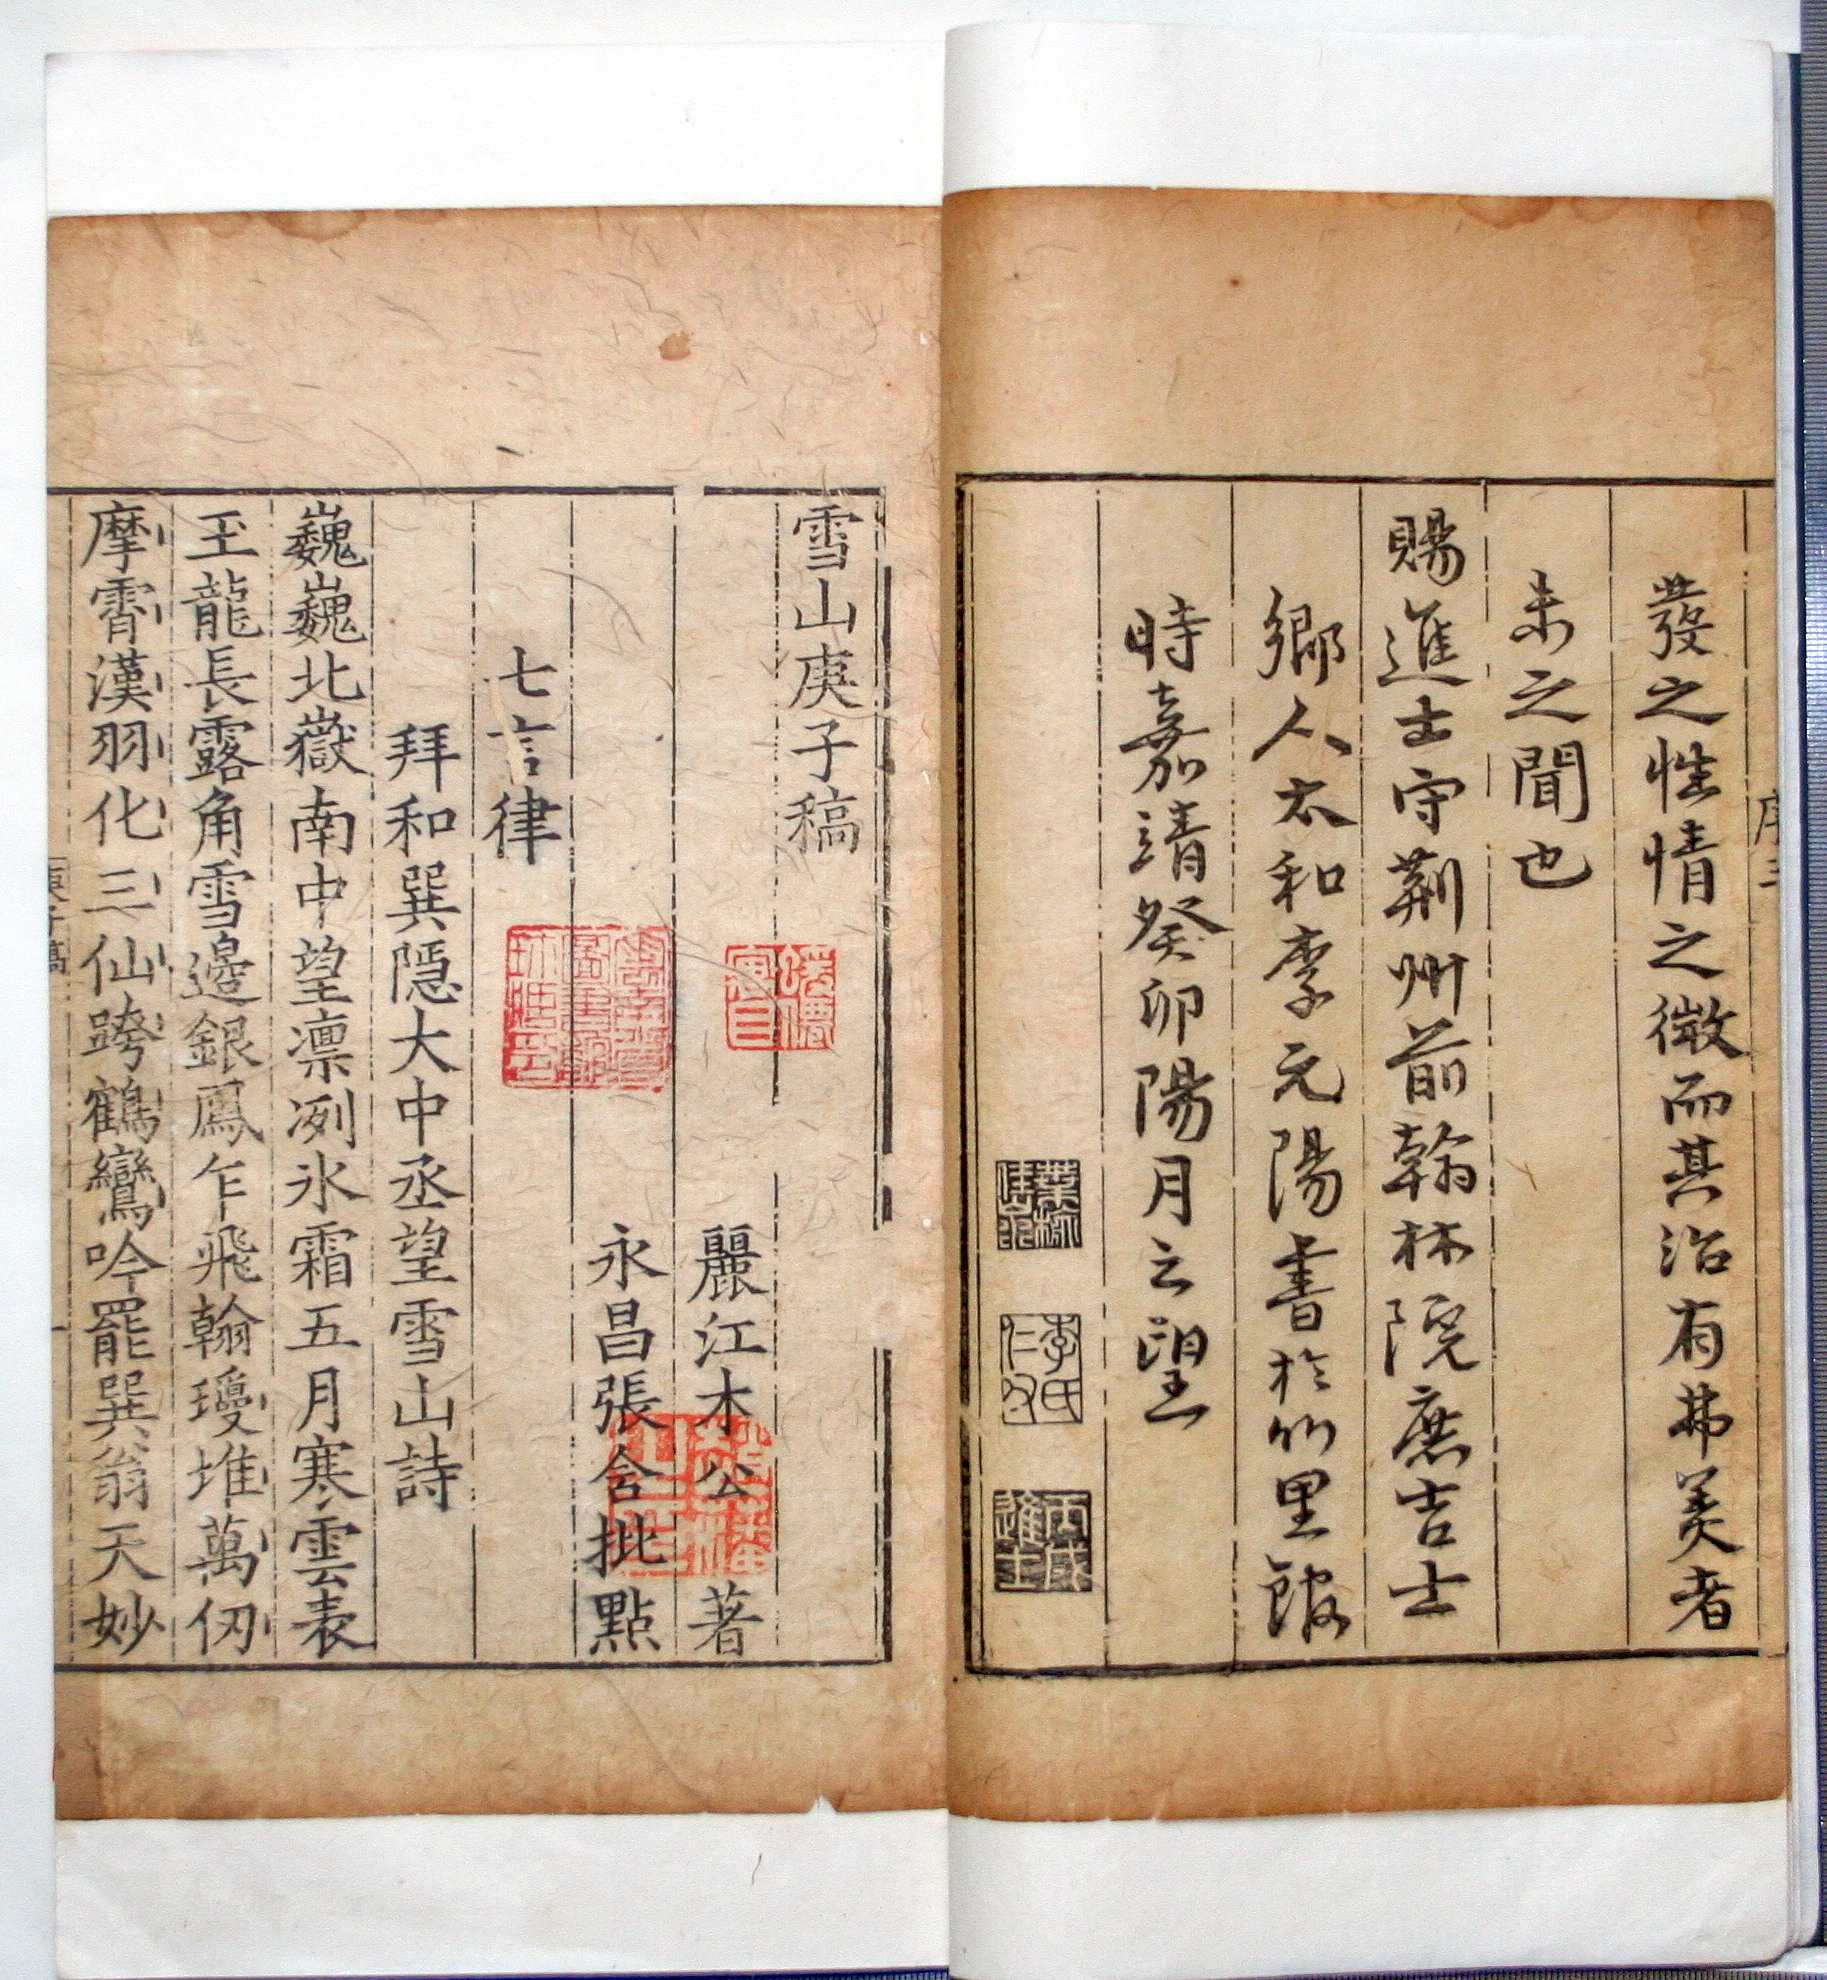 發之性情之微而其治有弗美者
未之聞也
賜進士守荊州前翰林院庶吉士
鄉人太和李元陽書於竹里館
時嘉靖癸卯陽月之望
李氏仁父
丙戌進士
雪山庚子稿
麗江木公著
永昌張含批點
七言律
拜和巽隱大中丞望雪山詩
巍巍北嶽南中望凛冽氷霜五月寒雲表
玉龍長露角雪邉銀鳳乍飛翰瓊堆萬仞
摩霄漢羽化三仙跨鶴鸞吟罷巽翁天妙